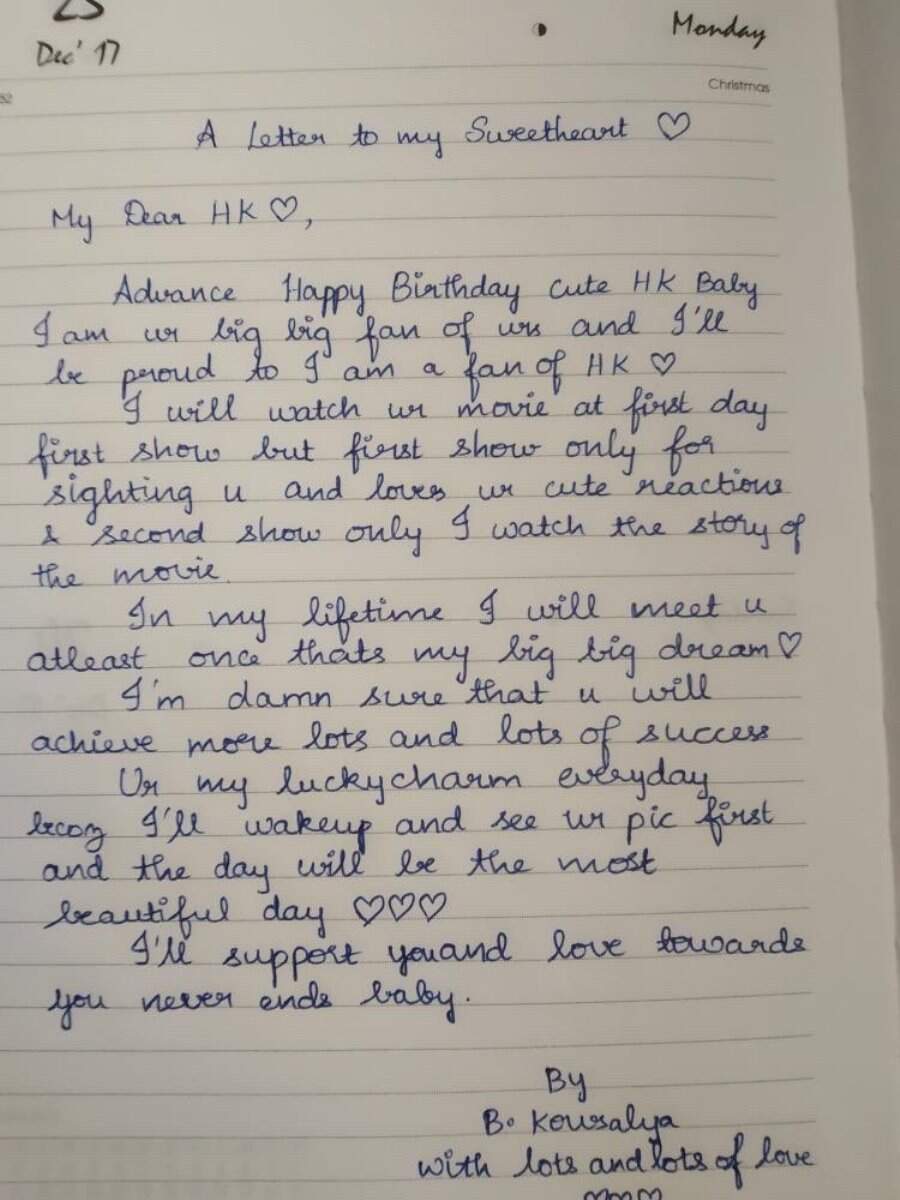 25
Dec' 17
Monday
Christmas
A Letter to my Sweetheart ♡
My Dear HK ♡,
Advance Happy Birthday cute HK Baby
I am ur big big fan of urs and I'll
be peroud to I am a fan of HK ♡
I will watch ur movie at first day
first show but first show only for
sighting u and loves ur cute reactions
& second show only I watch the story of
the movie.
In my lifetime I will meet u
atleast once thats my big big dream ♡
I'm damn sure that u will
achieve more lots and lots of success
Ur my luckycharm everyday
becoz I'll wakeup and see ur pic first
and the day will be the most
beautiful day ♡♡♡
I'll support you and love towards
you never ends baby.
By
B. Kowsalya
with lots and lots of love
♡♡♡